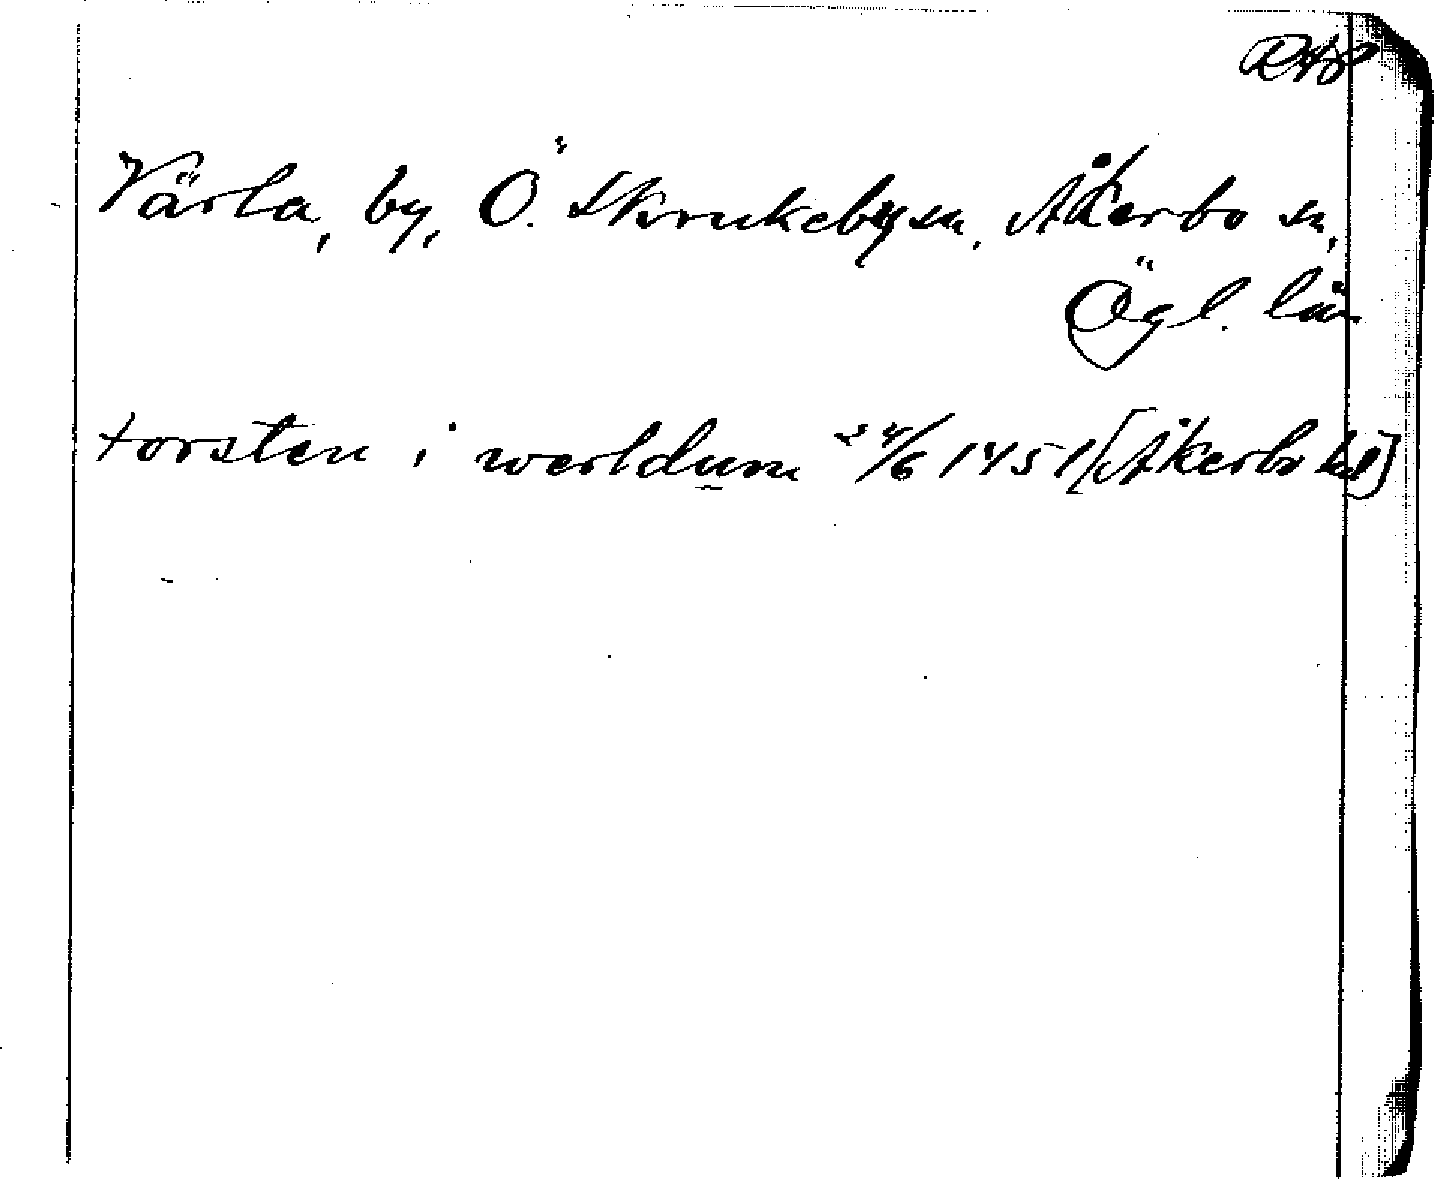 RAP
Värla, by, Ö. Skrukeby sn, Åkerbo sn,
Ögl. län
torsten i werldum 24/6 1451 [Åkerbo hd]